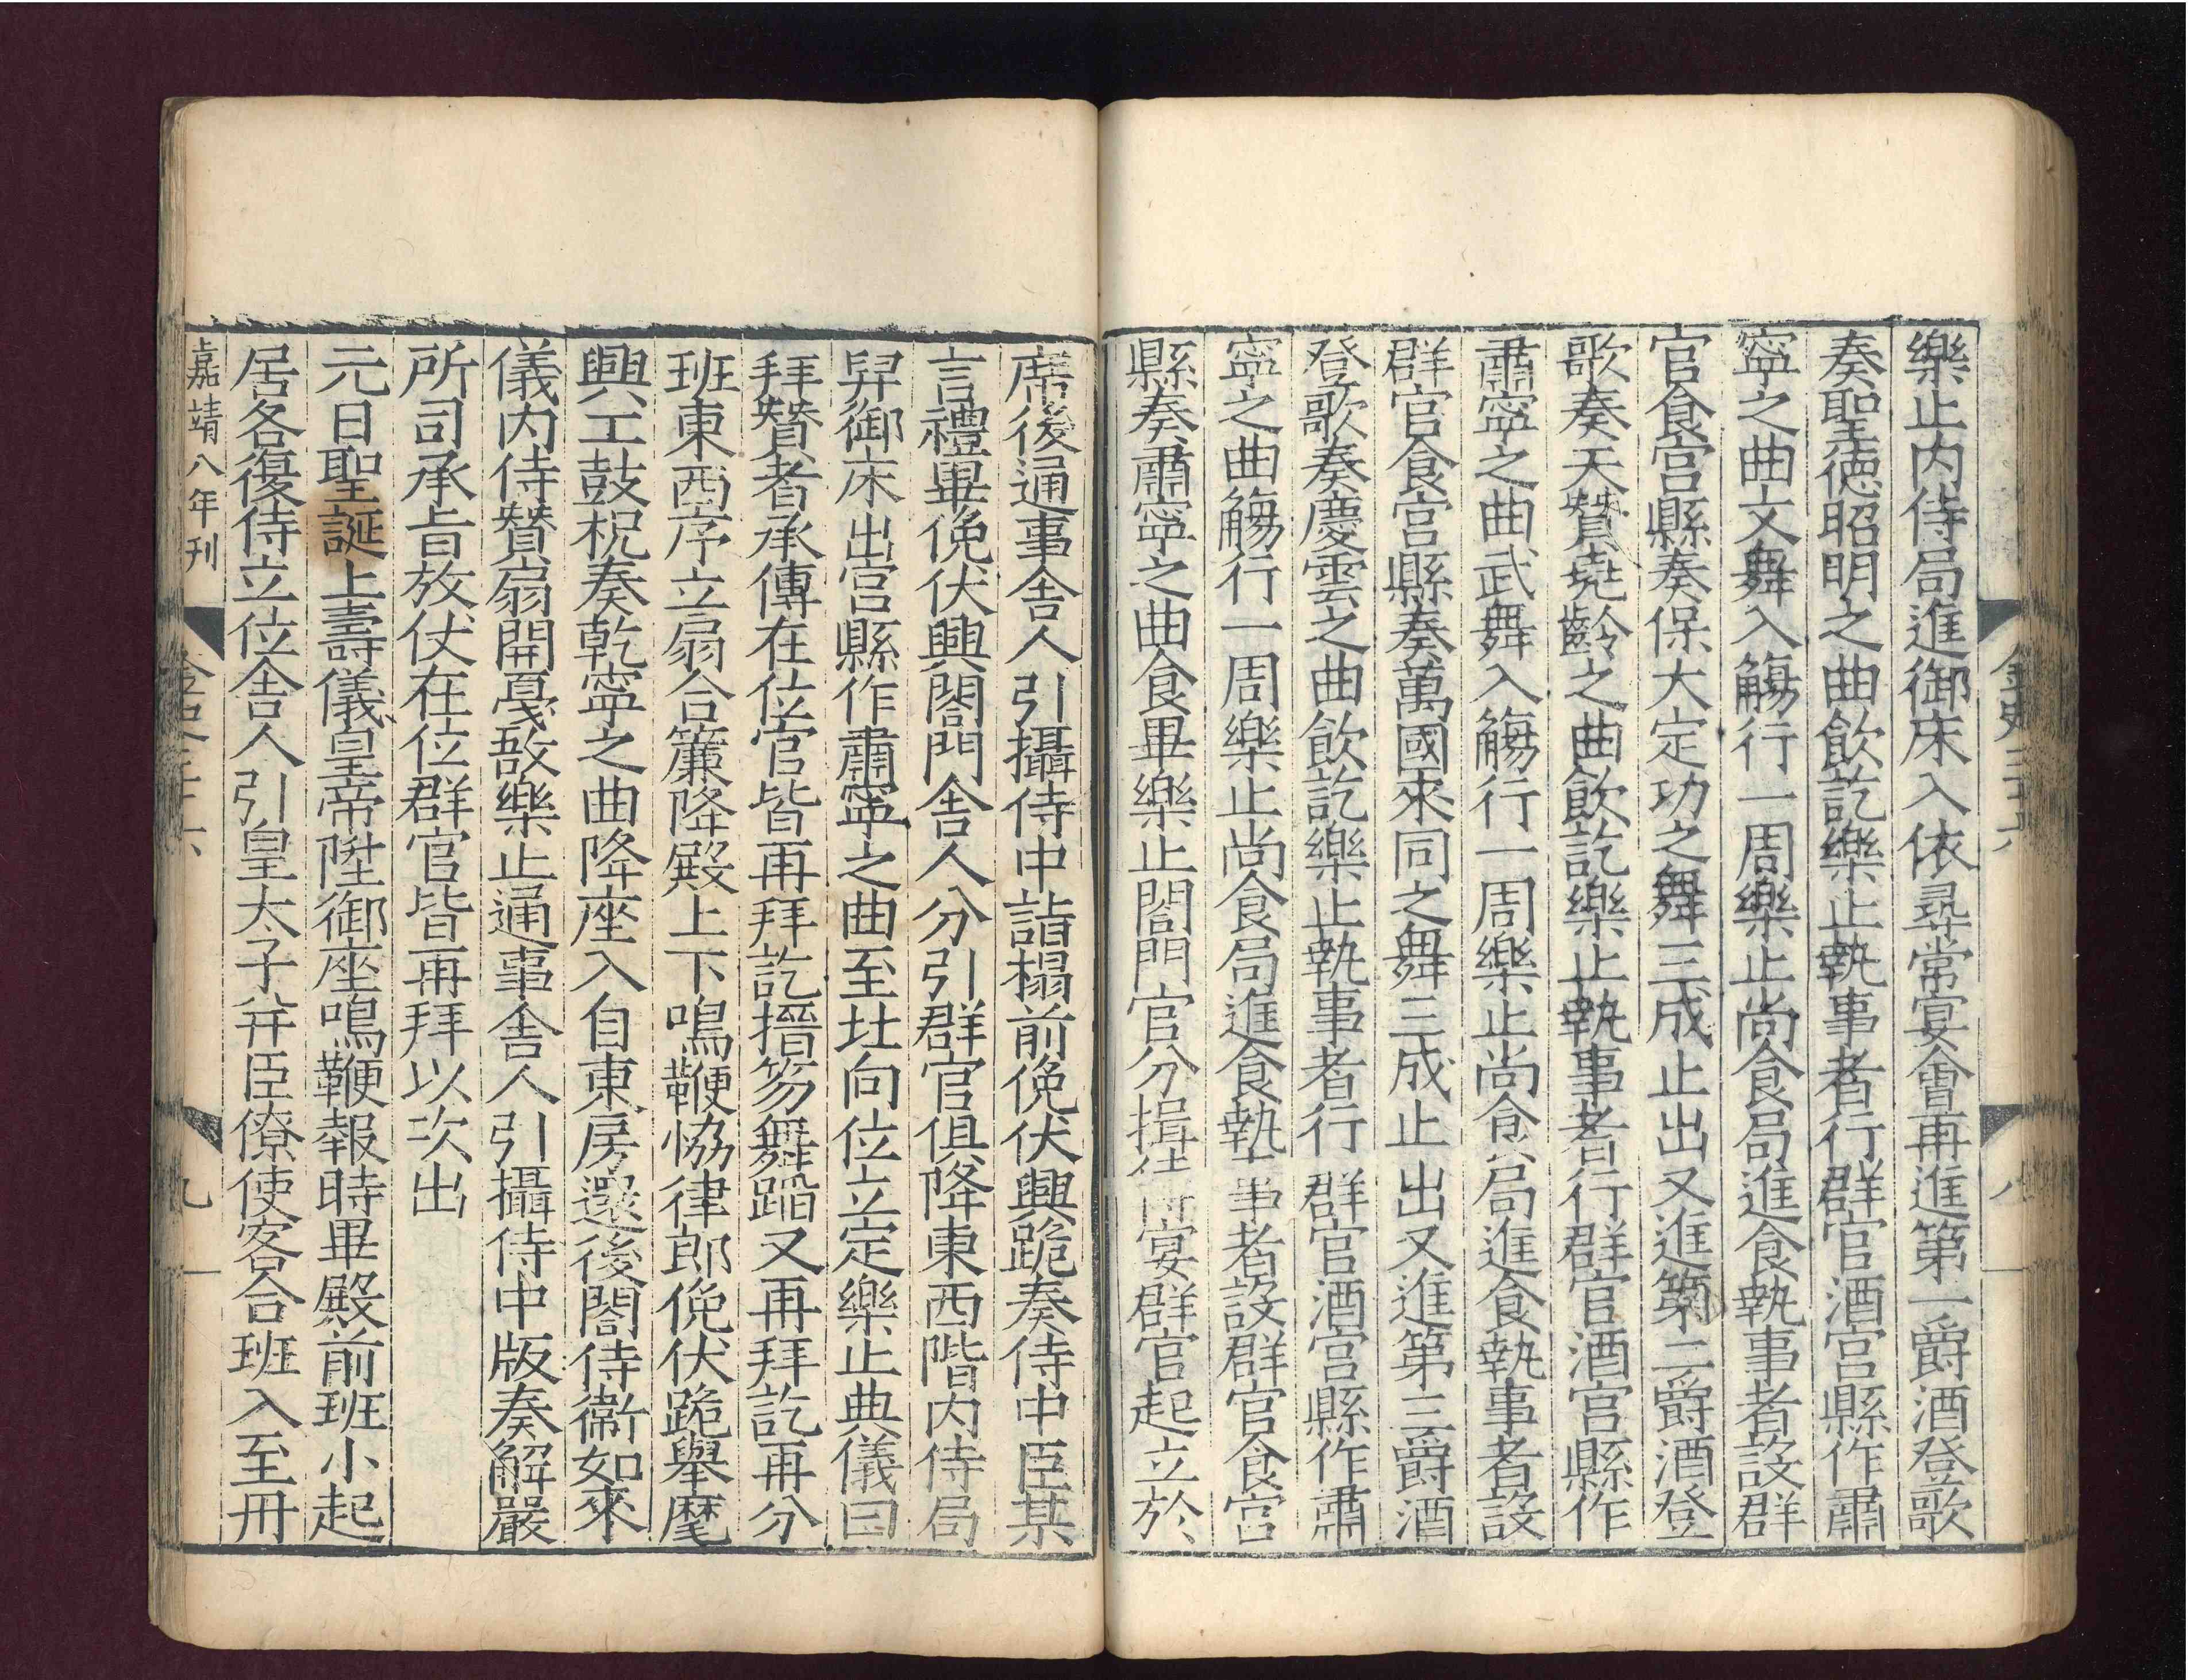 金史三十六
八
樂止内侍局進御床入依尋常宴會再進第一爵酒登歌
奏聖德昭明之曲飲訖樂止執事者行群官酒宫縣作肅
寧之曲文舞入觴行一周樂止尚食局進食執事者設群
官食宫縣奏保大定功之舞三成止出又進第二爵酒登
歌奏天贊堯齡之曲飲訖樂止執事者行群官酒宫縣作
肅寧之曲武舞入觴行一周樂止尚食局進食執事者設
群官食宫縣奏萬國來同之舞三成止出又進第三爵酒
登歌奏慶雲之曲飲訖樂止執事者行群官酒宫縣作肅
寧之曲觴行一周樂止尚食局進食執事者設群官食宫
縣奏肅寧之曲食畢樂止閤門官分揖侍宴群官起立於
席後通事舎人引攝侍中詣榻前俛伏興跪奏侍中臣某
言禮畢俛伏興閤門舎人分引群官俱降東西階内侍局
舁御床出宫縣作肅寧之曲至位向位立定樂止典儀曰
拜贊者承傳在位官皆再拜訖搢笏舞蹈又再拜訖再分
班東西序立扇合簾降殿上下鳴鞭恊律郎俛伏跪舉麾
興工鼓柷奏乾寧之曲降座入自東房還後閤侍衛如來
儀内侍贊扇開戛敔樂止通事舎人引攝侍中版奏解嚴
所司承旨放仗在位群官皆再拜以次出
元日聖誕上壽儀皇帝陞御座鳴鞭報時畢殿前班小起
居各復侍立位舎人引皇太子并臣僚使客合班入至丹
嘉靖八年刊
金史三十六
九